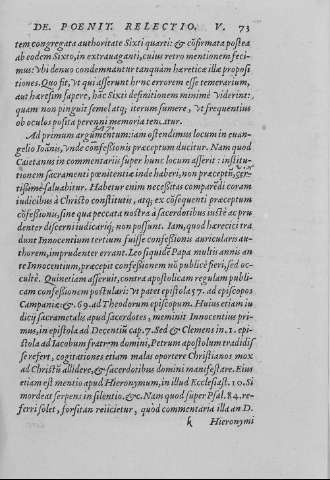 DE. POENIT. RELECTIO. V. 73
tem congregata authoritate Sixti quarti: & cõfirmata postea
ab eodem Sixto, in extrauaganti, cuius retro mentionem feci-
mus: vbi denuo condemnantur tanquàm hæreticæ illæ proposi
tiones. Quo fit, vt qui asserunt hunc errorem esse temerarium,
aut hæresim sapere, hãc Sixti definitionem minimè viderint:
quam non pinguit semel atq; iterum sumere, vt frequentius
ob oculos posita perenni memoria teneatur.
Ad primum argumentum: iam ostendimus locum in euan-
gelio Ioãnis, vnde confessionis præceptum ducitur. Nam quod
Caetanus in commentariis super hunc locum asserit: institu-
tionem sacramenti pœnitentiæ inde haberi, non præceptũ, cer-
tissimè saluabitur. Habetur enim necessitas comparẽdi coram
iudicibus à Christo constitutis, atq; ex cõsequenti præceptum
cõfessionis, sine qua peccata nostra à sacerdotibus iustè ac pru
denter discerni iudicariq; non possunt. Iam, quod hæretici tra
dunt Innocentium tertium fuisse confessionis auricularis au-
thorem, imprudenter errant. Leo siquidẽ Papa multis annis an
te Innocentium, præcepit confessionem nõ publicè fieri, sed oc-
cultè. Quinetiam asseruit, contra apostolicam regulam publi-
cam confessionem postulari: vt patet epistola 57. ad episcopos
Campaniæ: & 69. ad Theodorum episcopum. Huius etiam iu
dicij sacramentalis apud sacerdotes, meminit Innocentius pri-
mus, in epistola ad Decentiũ cap. 7. Sed & Clemens in 1. epi-
stola ad Iacobum fratrem domini, Petrum apostolum tradidis
se refert, cogitationes etiam malas oportere Christianos mox
ad Christũ allidere, & sacerdotibus domini manifestare. Eius
etiam est mentio apud Hieronymum, in illud Ecclesiast. 10. Si
mordeat serpens in silentio. &c. Nam quod super Psal. 84. re-
ferri solet, forsitan reiicietur, quod commentaria illa an D.
k Hieronymi